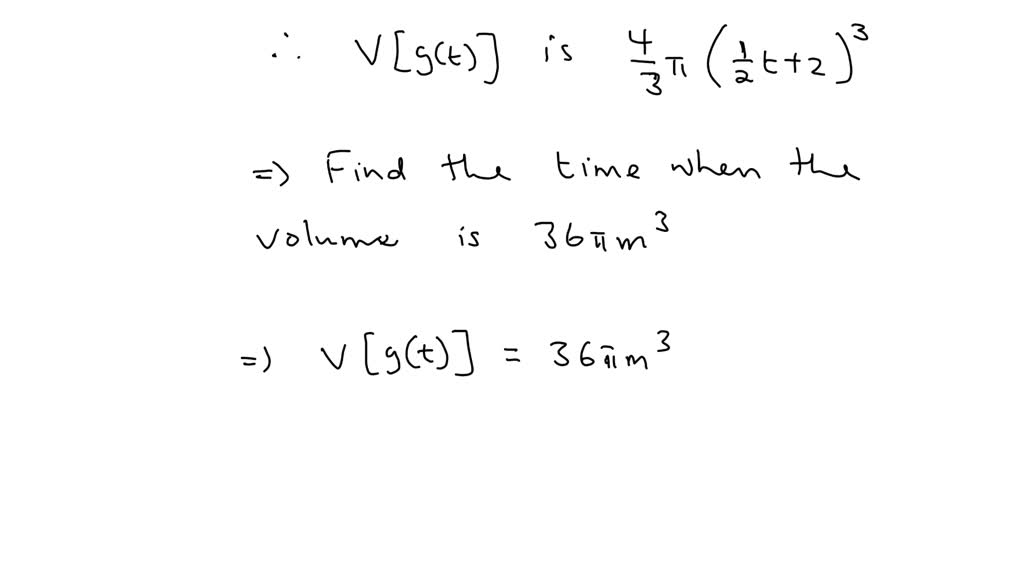 ∴ V[g(t)] is 4/3 π (1/2 t + 2)³
=> Find the time when the
volume is 36πm³
=> V[g(t)] = 36πm³